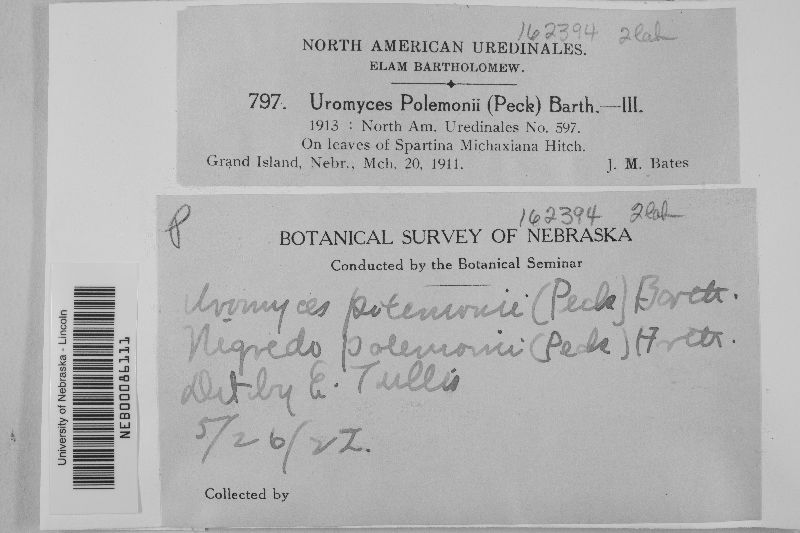 162394 2 lab
NORTH AMERICAN UREDINALES.
ELAM BARTHOLOMEW.
797. Uromyces Polemonii (Peck) Barth.—III.
1913 : North Am. Uredinales No. 597.
On leaves of Spartina Michaxiana Hitch.
Grand Island, Nebr., Mch. 20, 1911. J. M. Bates
P 162394 2 lab
BOTANICAL SURVEY OF NEBRASKA
Conducted by the Botanical Seminar
Uromyces polemonii (Peck) Barth.
Nigredo polemonii (Peck) Arth.
Det by E. Tullis
5/26/22.
Collected by
University of Nebraska - Lincoln
NEB00086111